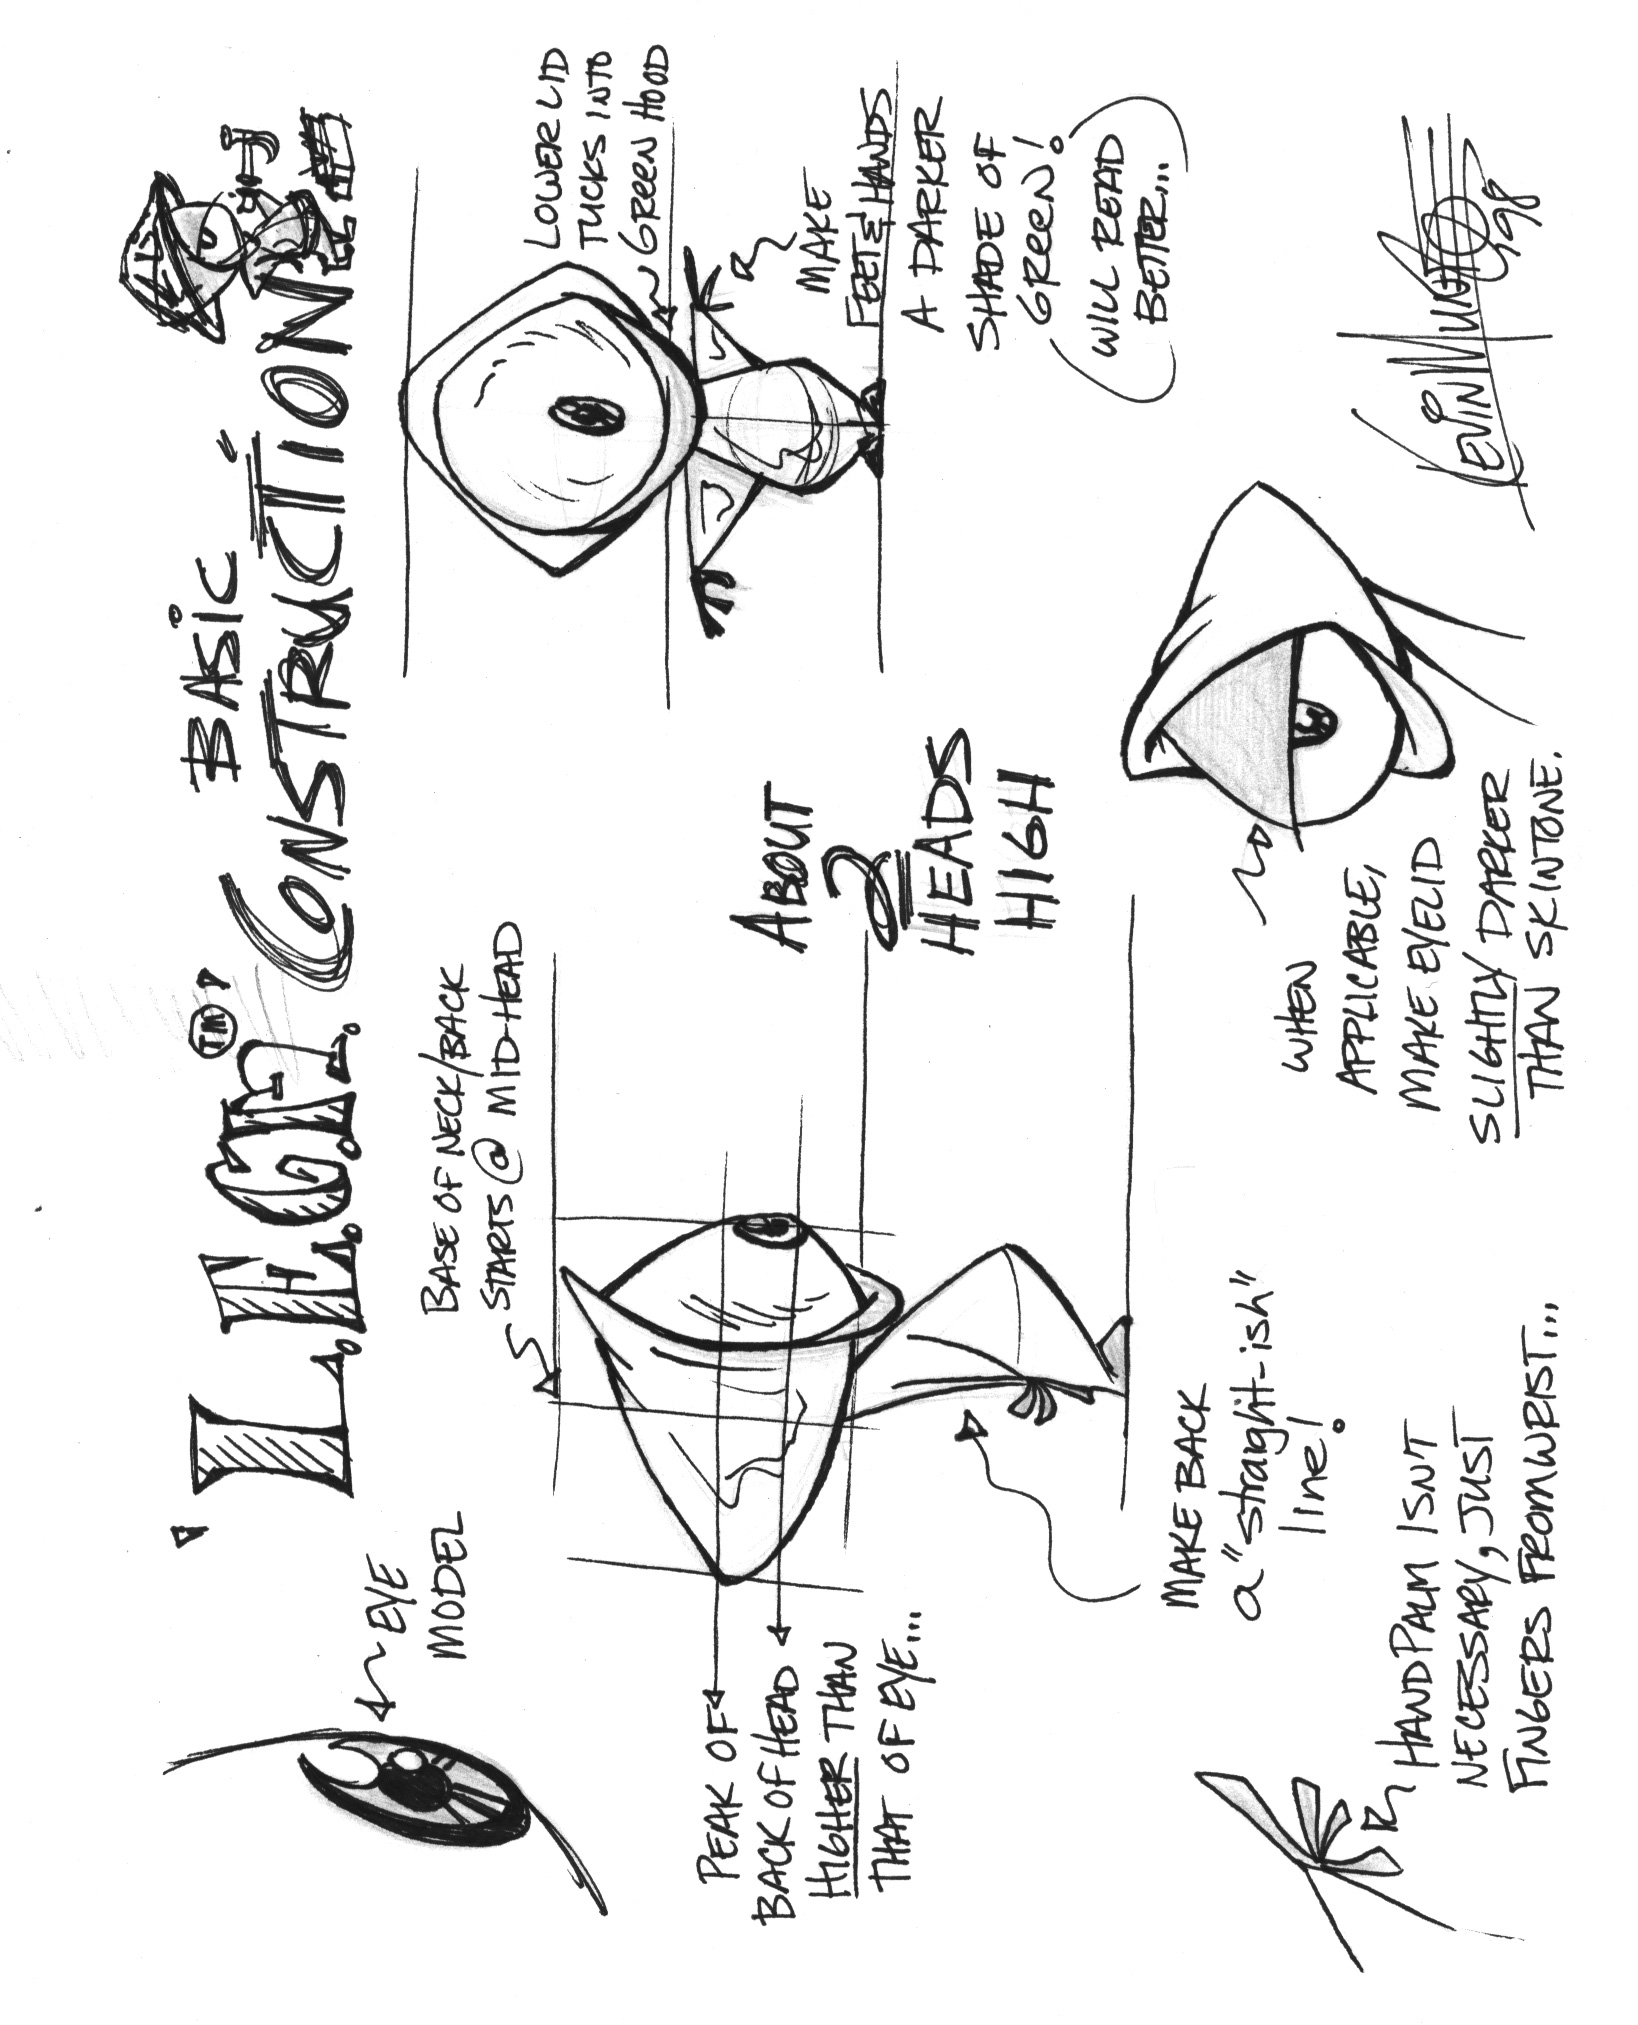 BASIC
CONSTRUCTION
EYE
MODEL
BASE OF NECK/BACK
STARTS @ MID-HEAD
LOWER LID
TUCKS INTO
GREEN HOOD
PEAK OF
BACK OF HEAD
HIGHER THAN
THAT OF EYE...
ABOUT
2
HEADS
HIGH
MAKE
FEET & HANDS
A DARKER
SHADE OF
GREEN!
WILL READ
BETTER...
MAKE BACK
a "straight-ish"
line!
HAND PALM ISNT
NECESSARY, JUST
FINGERS FROM WRIST...
WHEN
APPLICABLE,
MAKE EYELID
SLIGHTLY DARKER
THAN SKINTONE.
KEVIN 98